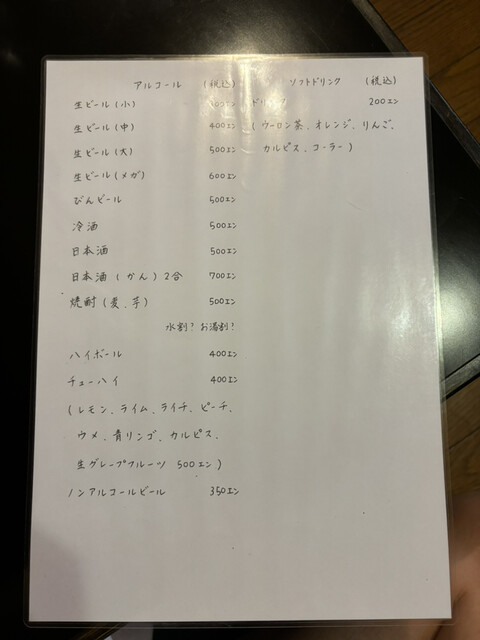 アルコール (税込)
生ビール(小)
生ビール(中) 400エン
生ビール(大) 500エン
生ビール(メガ) 600エン
びんビール 500エン
冷酒 500エン
日本酒 500エン
日本酒(かん)2合 700エン
焼酎(麦、芋) 500エン
水割? お湯割!
ハイボール 400エン
チューハイ 400エン
(レモン、ライム、ライチ、ピーチ、
ウメ、青リンゴ、カルピス、
生グレープフルーツ 500エン)
ノンアルコールビール 350エン
ソフトドリンク (税込)
ドリンク 200エン
(ウーロン茶、オレンジ、りんご、
カルピス、コーラー)